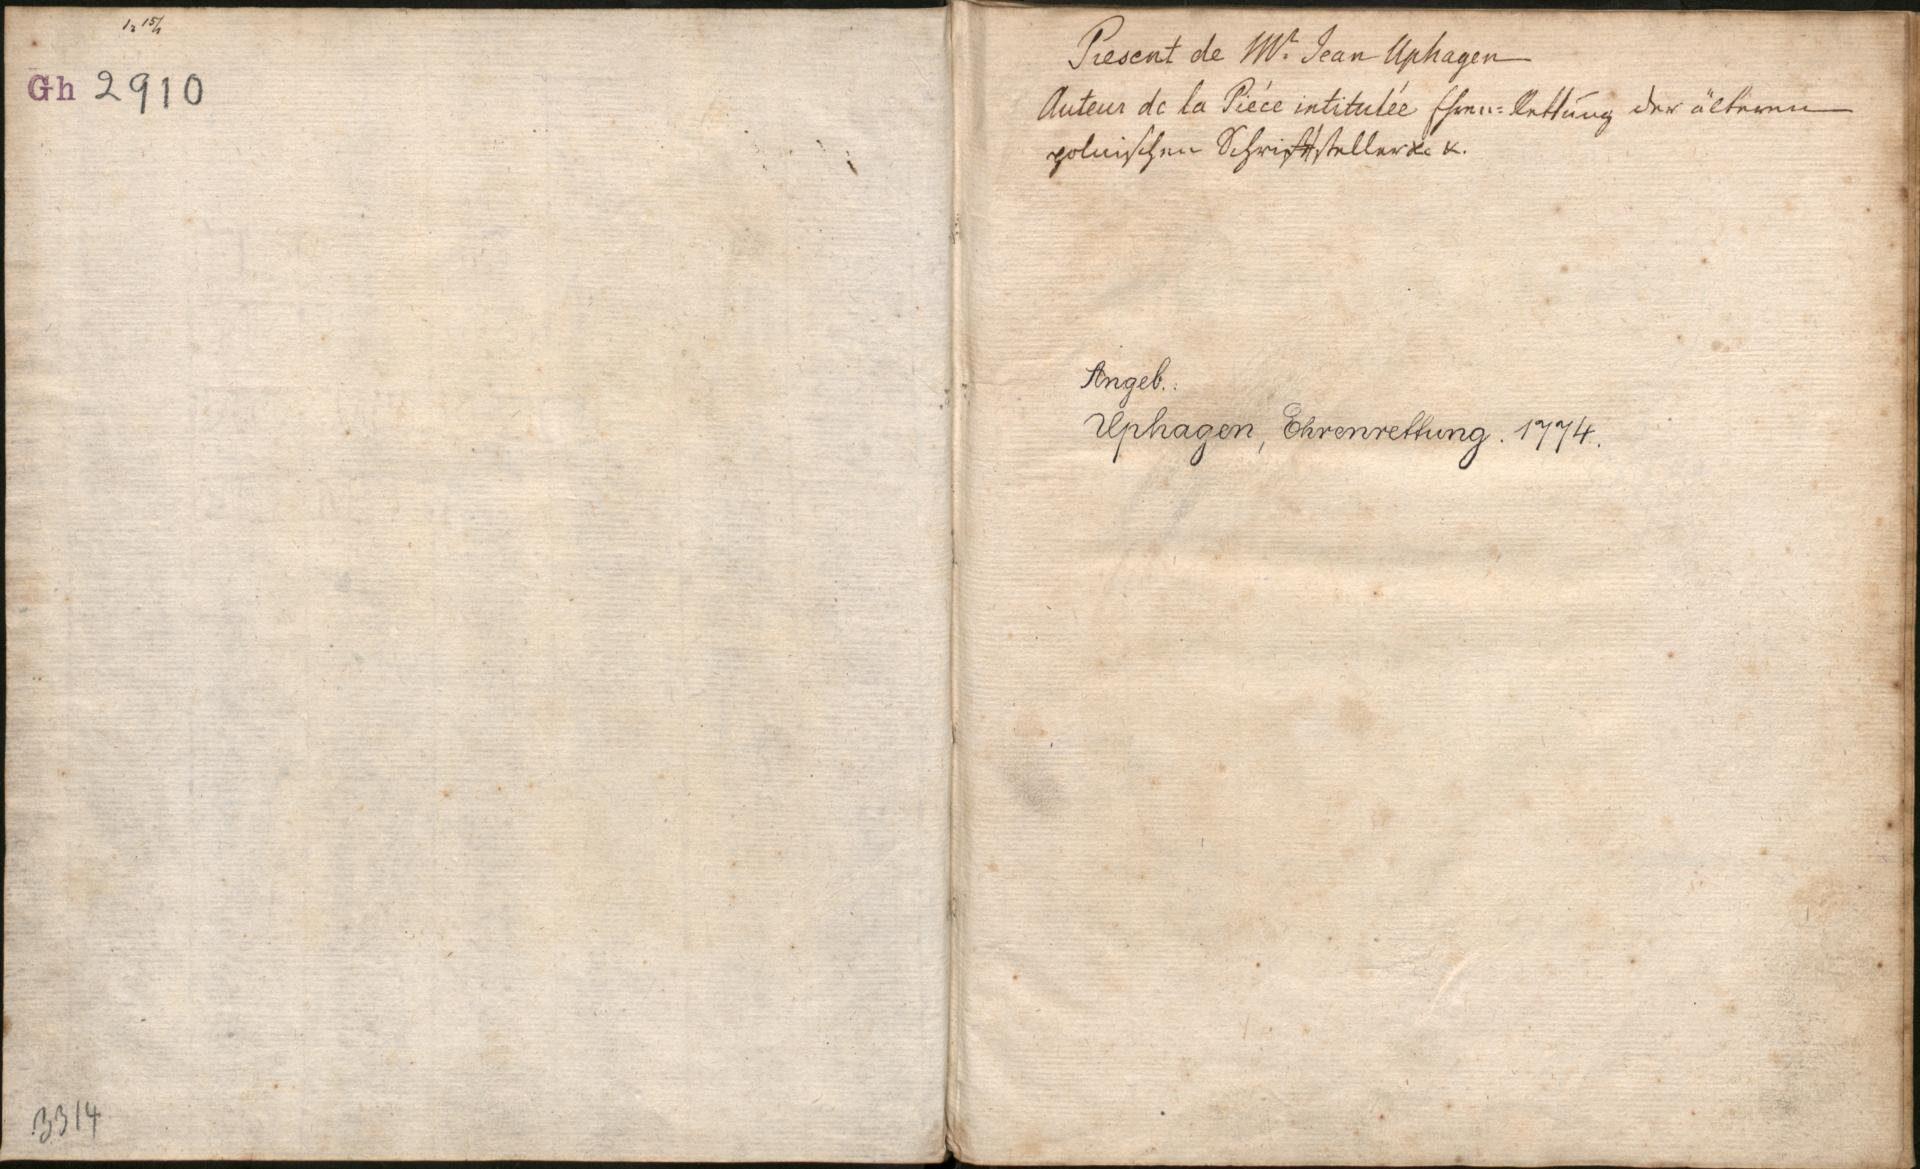 Gh 2910
3314
Present de Mr. Jean Uphagen
Auteur de la Piéce intitulée Ehren=Rettung der älteren
polnischen Schriftsteller &c &.
Angeb.:
Uphagen, Ehrenrettung. 1774.